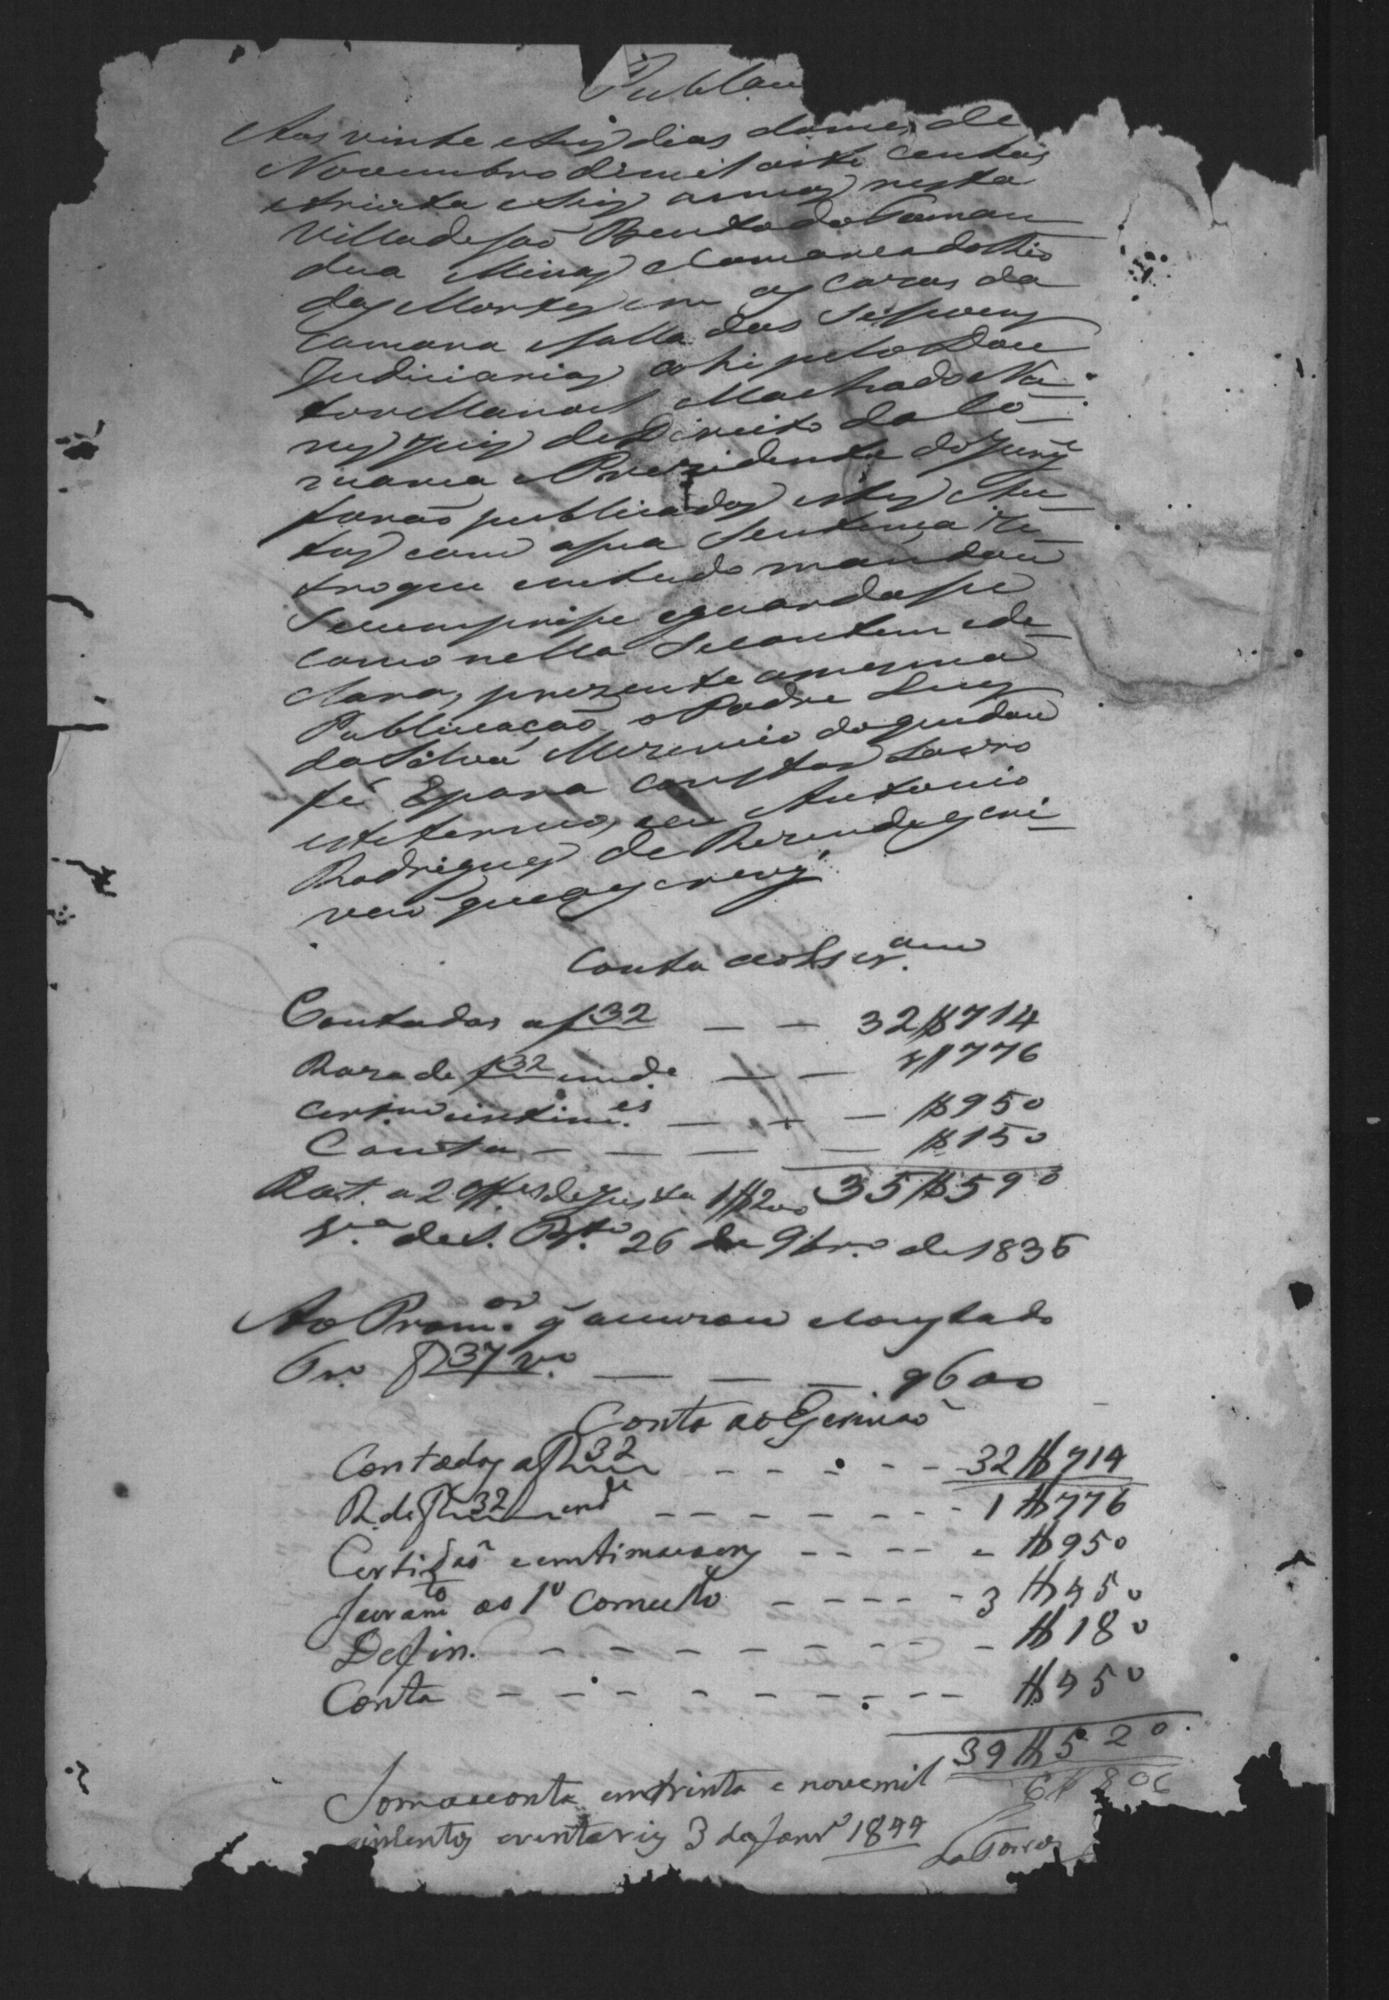 Publam
Aos vinte e seis dias do mes de
Novembro de mil oito centos
e trinta e seis annos nesta
Villa de São Bento do Taman
dua Minas e Comarca do Rio
das Mortes em as cazas da
Camara e salla das Sessoens
Judiciarias ahi pelo Dou
tor Manoel Machado Nu
nes Juiz de Direito da Co
marca e Prezidente do Jury
forão publicados estes Au
tos com a sua Sentença re
tro que em tudo mandou
se cumprise e guardasse
como nella se contem e de
clara, prezente a mesma
Publicação o Padre Luis
da Silva do que dou
fé E para constar Lavro
este termo, eu Antonio
Rodrigues de Rezende escri
vão que o escrevy
Conta ao Escr.am
Contados a f 32 — — 32$714
Raza de f 32 em de. — — 1$776
Cert.m e intim.es — — — $950
Conta — — — — $150
35$590
Rat. a 2 Off.es de Justa 1$200
V.a de S. B.to 26 de 9br.o de 1836
Ao Prom.or q acuzou e
f 37 v.o — — — 9600
Conta ao Escrivão
Contados a f 32 - - - - - 32$714
R. de f 32 em de - - - - - 1$776
Certidão e intimacoens - - - - $950
Juram.to ao 1º - - - - - 3$450
Defin. - - - - - - - - $180
Conta - - - - - - - - - $450
39$520
Soma a conta em trinta e nove mil
quinhentos e vinte reis 3 de Janr.o 1844